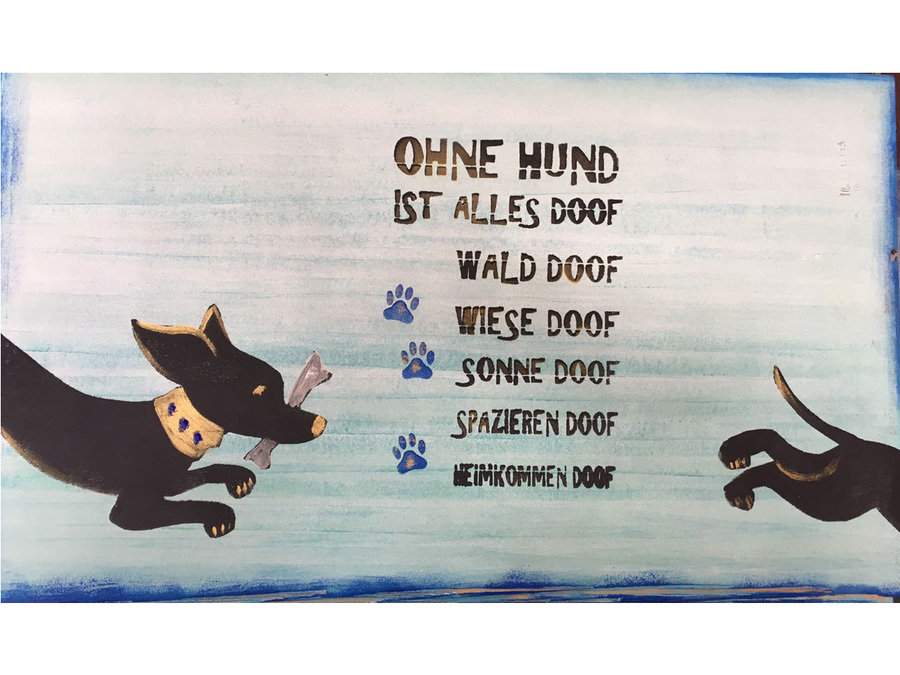 OHNE HUND
IST ALLES DOOF
WALD DOOF
WIESE DOOF
SONNE DOOF
SPAZIEREN DOOF
HEIMKOMMEN DOOF